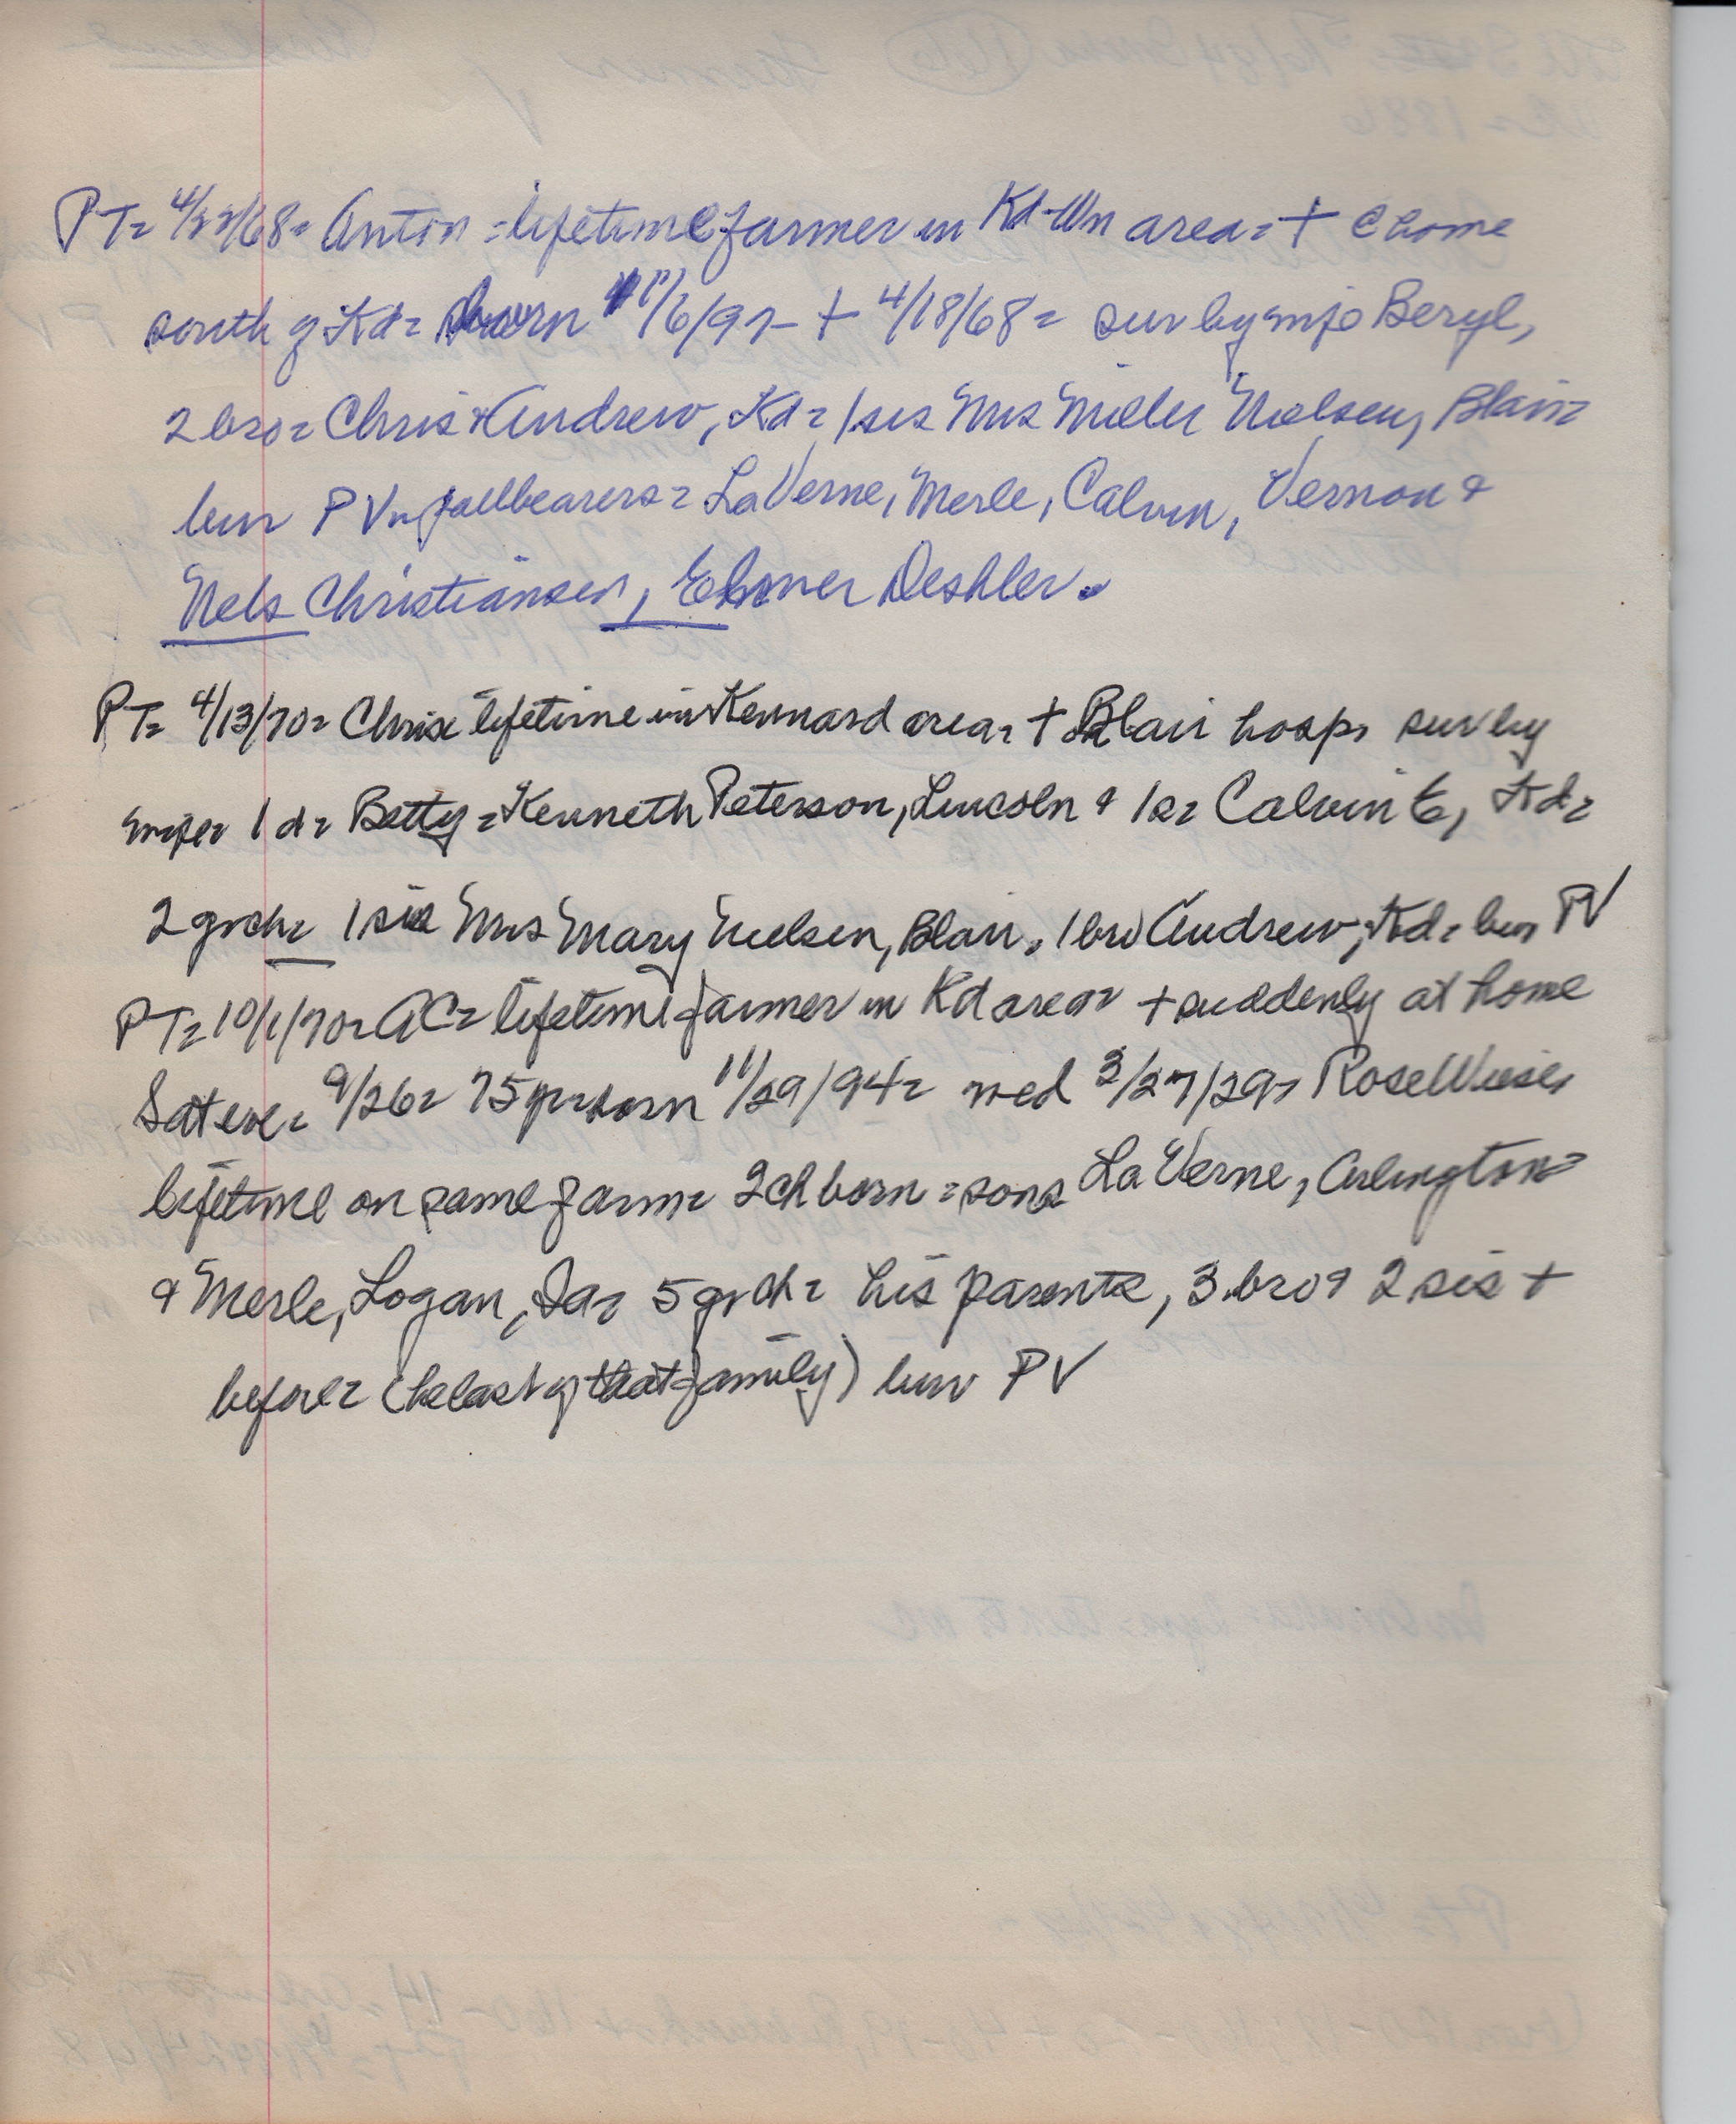 PT= 4/22/68= Anton = lifetime farmer in Kd-Wn area = + @ home
south of Kd= born 11/6/97 - + 4/18/68 = sur by wife Beryl,
2 bro = Chris & Andrew, Kd = 1 sis Mrs Miller Nielsen, Blair=
bur PV = pallbearers = LaVerne, Merle, Calvin, Vernon &
Nels Christiansen, Elmer Deshler.
PT= 4/13/70= Chris lifetime in Kennard area = + Blair hosp, sur by
wife= 1 d= Betty = Kenneth Peterson, Lincoln & 1 s= Calvin E, Kd=
2 grch= 1 sis Mrs Mary Nielsen, Blair, 1 bro Andrew, Kd= bur PV
PT= 10/1/70= AC= lifetime farmer in Kd area= + suddenly at home
Sat eve = 9/26= 75 yr= born 11/29/94= wed 3/27/29= Rose Wiese,
lifetime on same farm= 2 ch born = sons LaVerne, Arlington=
& Merle, Logan, Ia= 5 grch= his parents, 3 bro & 2 sis +
before= (he last of that family) bur PV